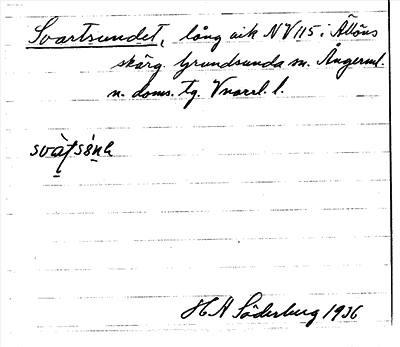 Svartsundet, lång vik NV 115 i Ållöns
skärg. Grundsunda sn. Ångerml.
n. doms. tg. Vnorrl. l.
svàţsúnḁ
H A Söderberg 1936